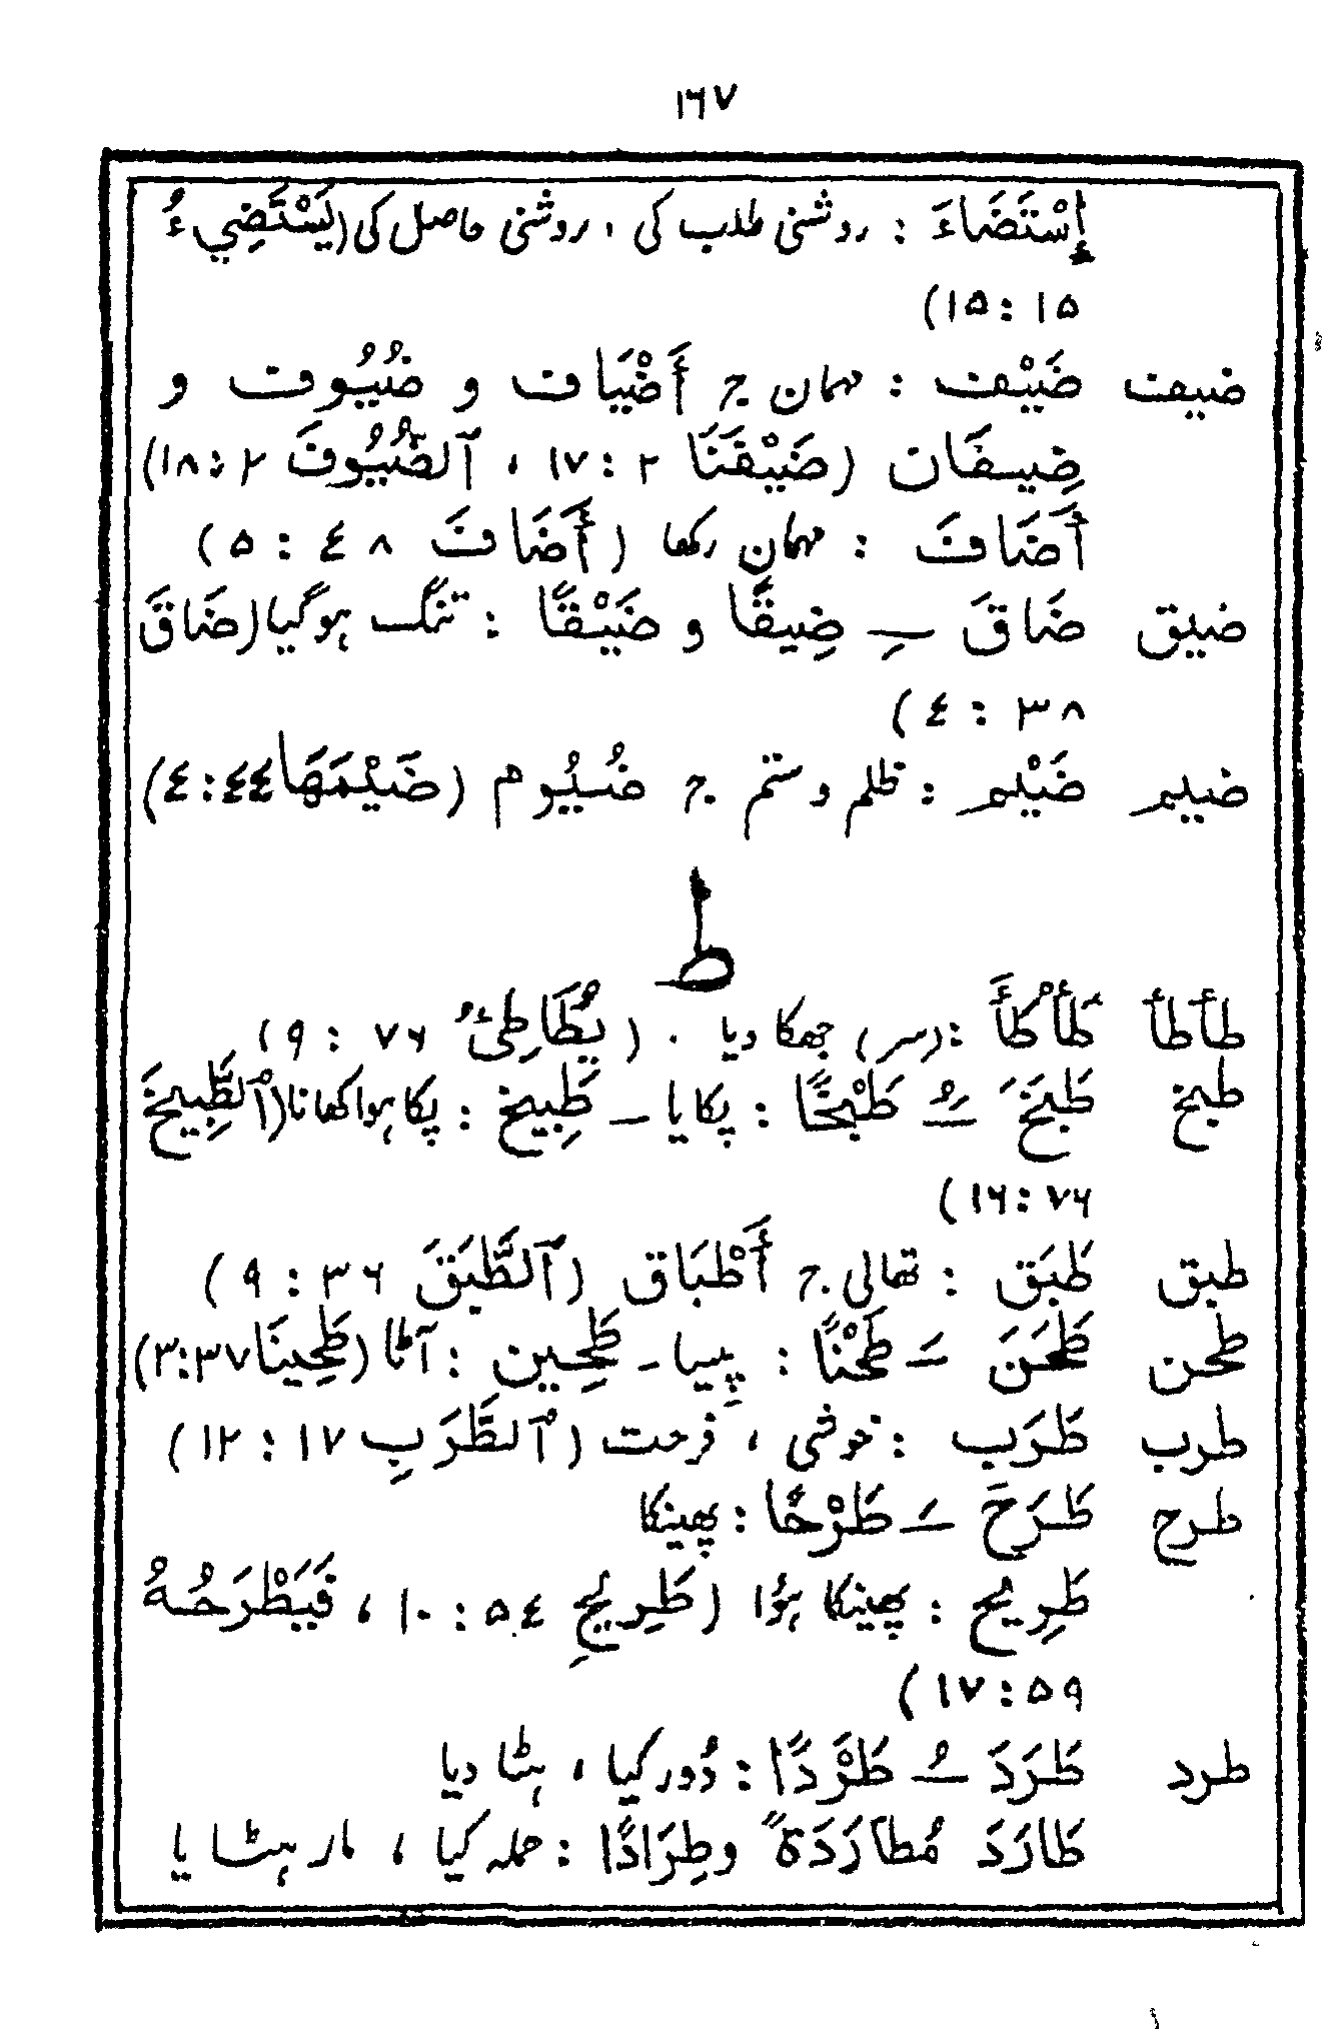 ١٦٧
إِسْتَضَاءَ : روشنی طلب کی ، روشنی حاصل کی (يَسْتَضِيءُ
١٥ : ١٥)
ضيف ضَيْف : مہمان ج أَضْيَاف و ضُيُوف و
ضِيفَان (ضَيْفَنَا ٢ : ١٧ ، اَلضُّيُوفَ ٢ : ١٨)
أَضَافَ : مہمان رکھا (أَضَافَ ٤٨ : ٥)
ضيق ضَاقَ ـِ ضِيقًا و ضَيْقًا : تنگ ہوگیا (ضَاقَ
٣٨ : ٤)
ضيم ضَيْم : ظلم و ستم ج ضُيُوم (ضَيْمَهَا ٤٤ : ٤)
ط
طأطأ طَأْطَأَ : (سر) جھکا دیا . (يُطَاطِىُٔ ٧٦ : ٩)
طبخ طَبَخَ ـَُ طَبْخًا : پکایا ـ طَبِيخ : پکا ہوا کھانا (اَلطَّبِيخَ
٧٦ : ١٦)
طبق طَبَق : تھالی ج أَطْبَاق (اَلطَّبَقَ ٣٦ : ٩)
طحن طَحَنَ ـَ طَحْنًا : پِیسا ـ طَحِين : آٹا (طَحِينَا ٣٧ : ٣)
طرب طَرَب : خوشی ، فرحت (اَلطَّرَبِ ١٧ : ١٢)
طرح طَرَحَ ـَ طَرْحًا : پھینکا
طَرِيح : پھینکا ہُوا (طَرِيحِ ٥٤ : ١٠ ، فَيَطْرَحُهُ
٥٩ : ١٧)
طرد طَرَدَ ـُ طَرْدًا : دُور کیا ، ہٹا دیا
طَارَدَ مُطَارَدَةً وطِرَادًا : حملہ کیا ، مار ہٹایا